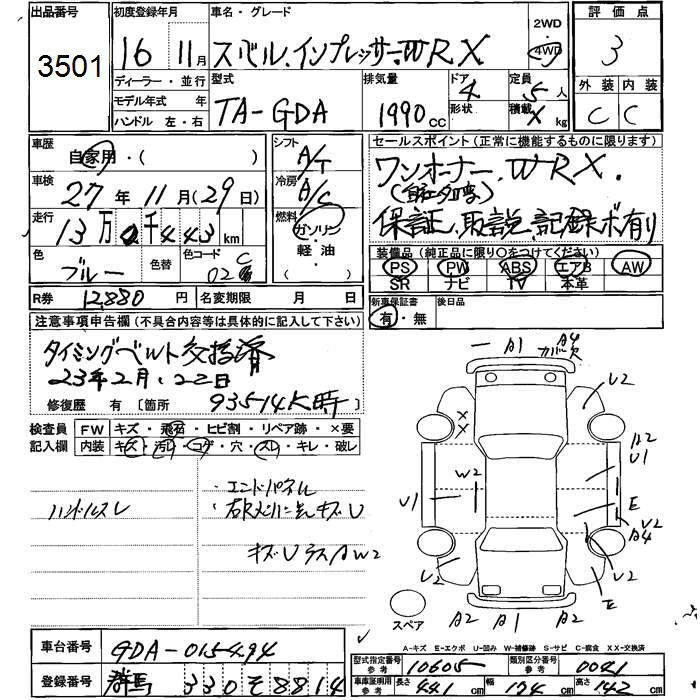 出品番号
3501
初度登録年月
16 11月
ディーラー・並行
モデル年式 年
ハンドル 左・右
車名・グレード
スバル.インプレッサ.WRX
2WD
4WD
型式
TA-GDA
排気量
1990cc
ドア
4
形状
定員
5人
積載
X kg
評価点
3
外装 内装
C C
車歴
自家用・( )
車検
27年11月(29日)
走行
13万 0千443km
色
ブルー
色替
色コード
02C
シフト
A/T
冷房
A/C
燃料
ガソリン
軽・油
( )
セールスポイント(正常に機能するものに限ります)
ワンオーナー.WRX.
保証.取説.記録ボ有り
装備品(純正品に限り○をつけてください)
PS PW ABS エアB AW
SR ナビ TV 本革
R券 12,880円 名変期限 月 日
新車保証書
有・無
後日品
注意事項申告欄(不具合内容等は具体的に記入して下さい)
タイミングベルト交換済
23年2月.22日
93514K時
修復歴 有[箇所
検査員
記入欄
FW キズ・飛石・ヒビ割・リペア跡・×要
内装 キズ・汚レ・コゲ・穴・スレ・キレ・破レ
ハンドルスレ
・エンドパネル
キズU
W2
A1 A4
U2
XX
A2
U1
W2
U1
E
U2
A4
U2
E
スペア
A2 A1 A2
A-キズ E-エクボ U-凹み W-補修跡 S-サビ C-腐食 XX-交換済
車台番号 GDA-015494
登録番号 群馬 330そ8814
型式指定番号
参考
10605
類別区分番号
参考
0021
車庫証明用
参考
長さ 441cm 幅 174cm 高さ 142cm